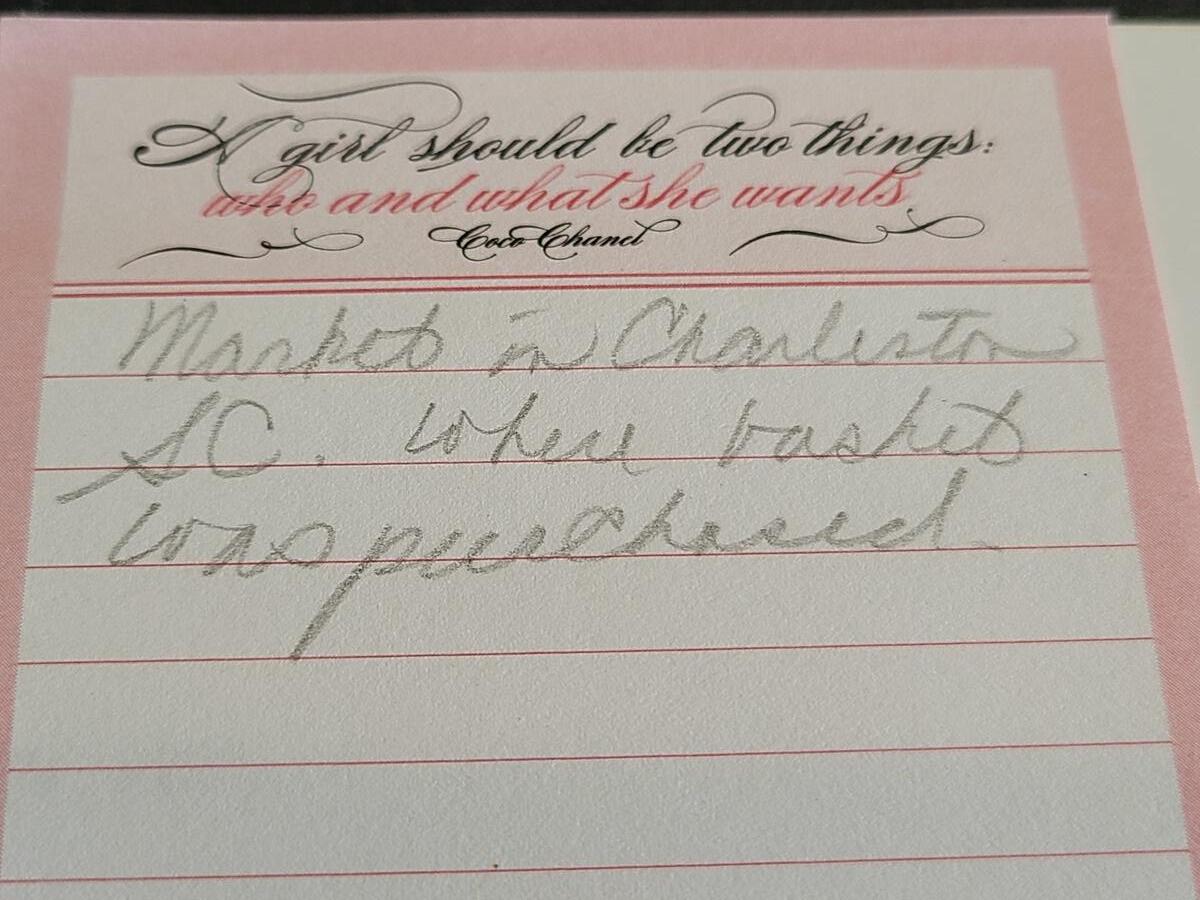 A girl should be two things:
who and what she wants.
Coco Chanel
Market in Charleston
SC. where basket
was purchased